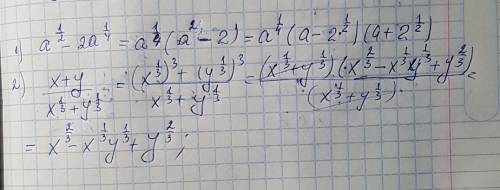 1) a^{1/2} - 2a^{1/4} = a^{1/4}(a^2 - 2) = a^{1/4}(a - 2^{1/2})(a + 2^{1/2})
2) \frac{x+y}{x^{1/3} + y^{1/3}} = \frac{(x^{1/3})^3 + (y^{1/3})^3}{x^{1/3} + y^{1/3}} = \frac{(x^{1/3} + y^{1/3})(x^{2/3} - x^{1/3}y^{1/3} + y^{2/3})}{(x^{1/3} + y^{1/3})} =
= x^{2/3} - x^{1/3}y^{1/3} + y^{2/3};